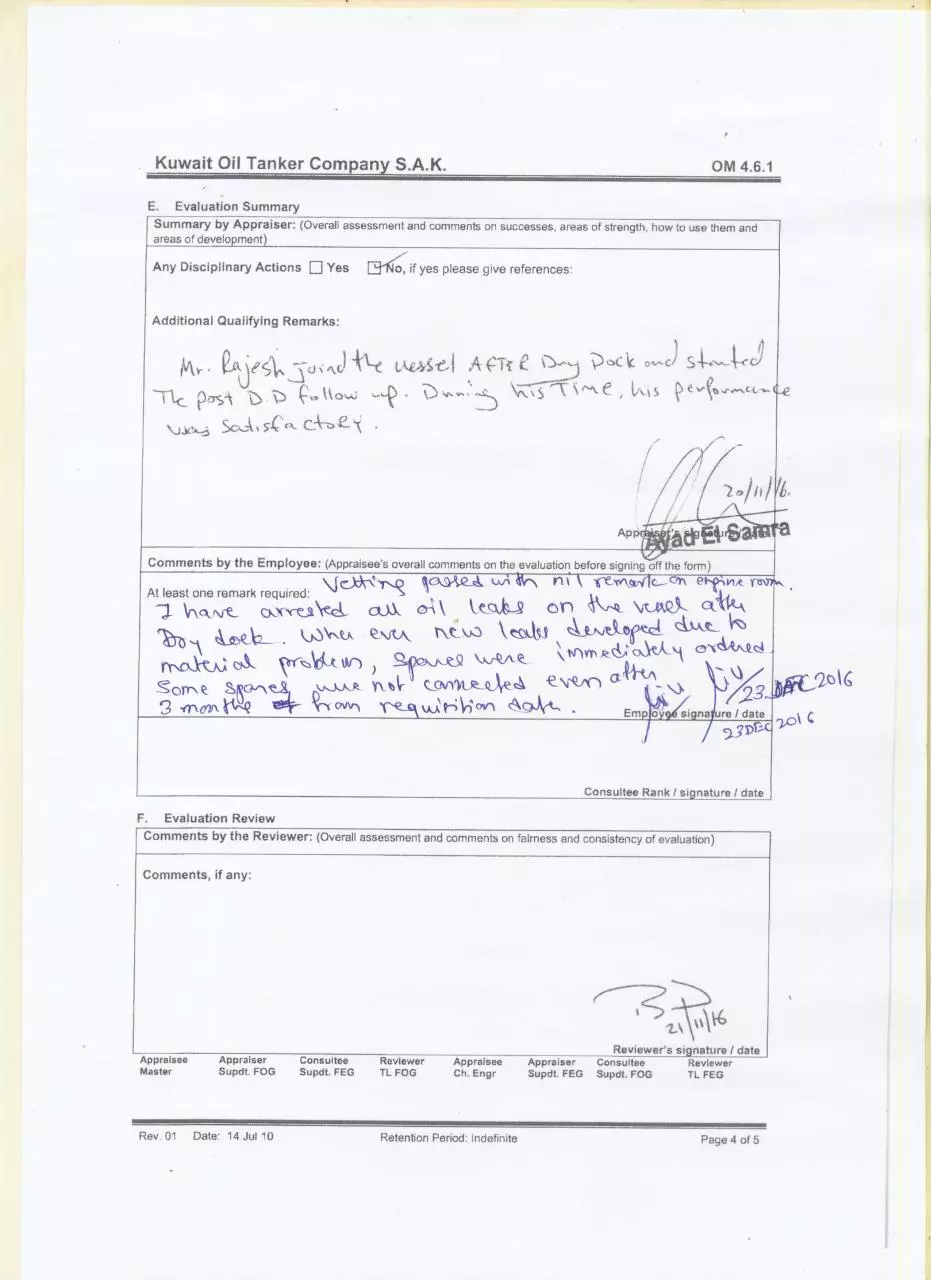 Kuwait Oil Tanker Company S.A.K. OM 4.6.1
E. Evaluation Summary
Summary by Appraiser: (Overall assessment and comments on successes, areas of strength, how to use them and
areas of development)
Any Disciplinary Actions Yes No, if yes please give references:
Additional Qualifying Remarks:
Mr. Rajesh joind the vessel AFTER Dry Dock and started
The post D.D follow up. During his Time, his performance
was satisfactory.
20/11/16.
Appraiser's signature / date
Ayad El Samra
Comments by the Employee: (Appraisee's overall comments on the evaluation before signing off the form)
At least one remark required: Vetting passed with nil remark on engine room.
I have arrested all oil leaks on the vessel after
Dry dock. When ever new leaks developed due to
material problem, spares were immediately ordered
Some spares were not connected even after
3 months from requisition date.
23 DEC 2016
Employee signature / date
23 DEC 2016
Consultee Rank / signature / date
F. Evaluation Review
Comments by the Reviewer: (Overall assessment and comments on fairness and consistency of evaluation)
Comments, if any:
21/11/16
Reviewer's signature / date
Appraisee Appraiser Consultee Reviewer Appraisee Appraiser Consultee Reviewer
Master Supdt. FOG Supdt. FEG TL FOG Ch. Engr Supdt. FEG Supdt. FOG TL FEG
Rev. 01 Date: 14 Jul 10 Retention Period: Indefinite Page 4 of 5